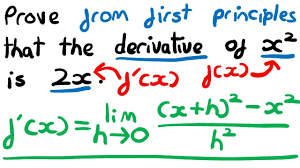 Prove from first principles
that the derivative of x²
is 2x. f'(x) f(x)
f'(x) = lim h→0 (x+h)² - x² / h²